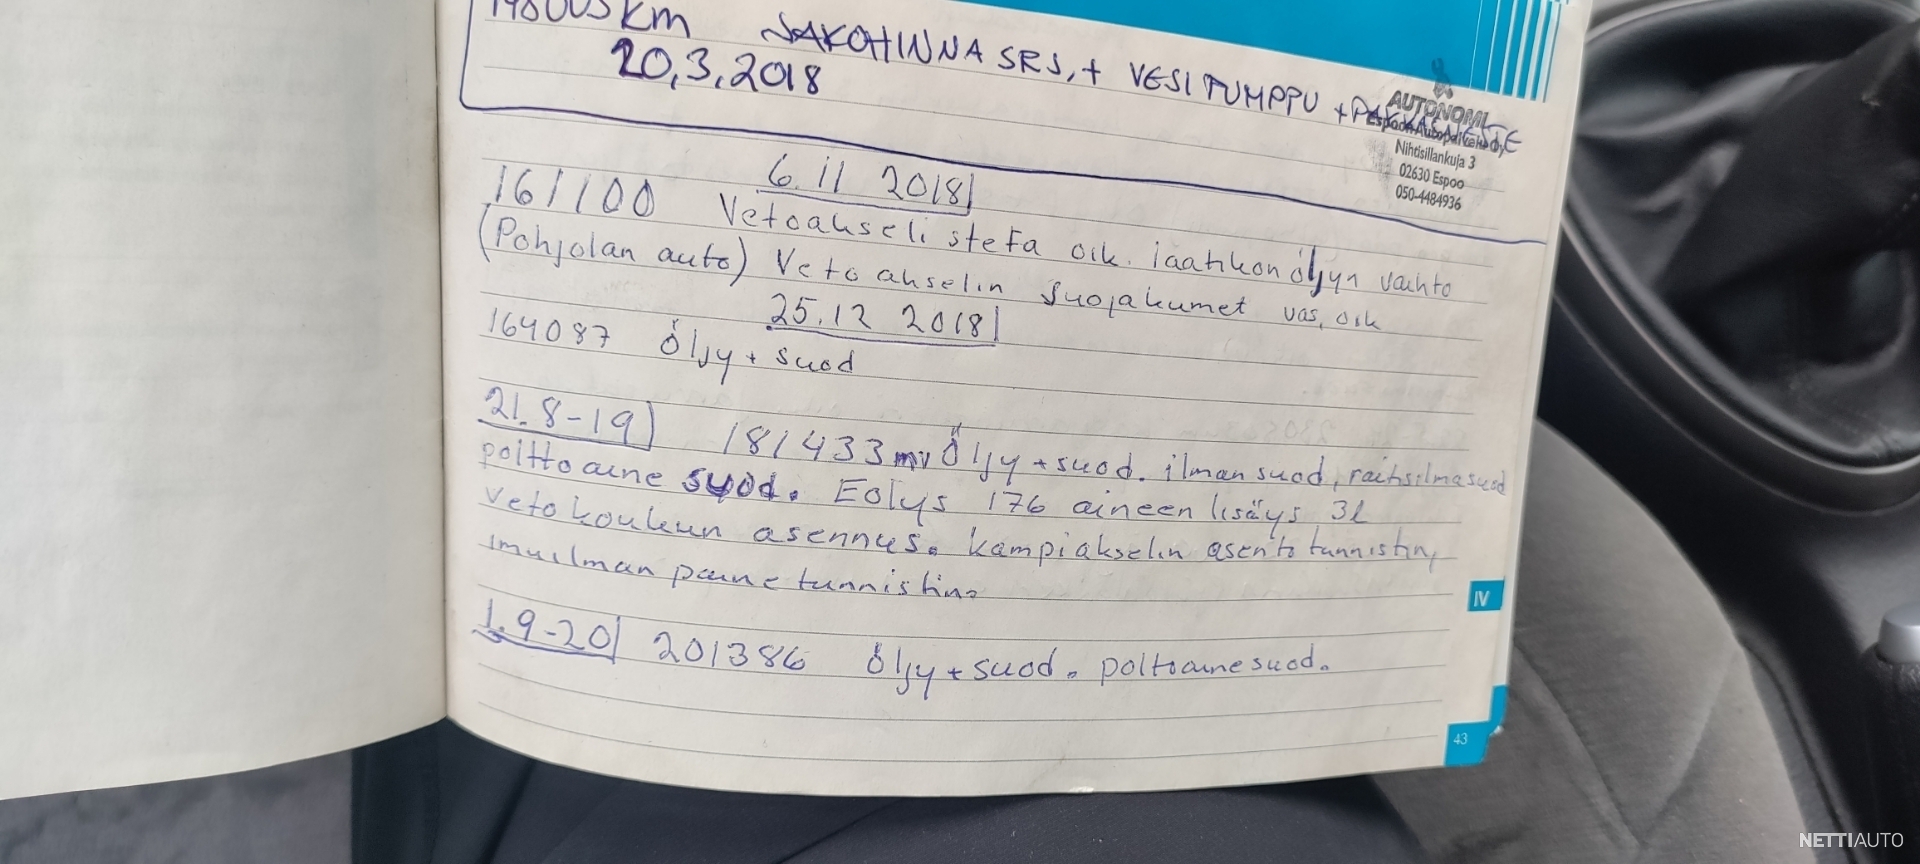 148005 km JAKOHINNA SRJ, + VESI PUMPPU + PAKKASNESTE
20,3,2018
AUTONOMI
Espoon Autopalvelu Oy
Nihtisillankuja 3
02630 Espoo
050-4484936
6.11 2018
161100 Vetoakseli stefa oik. laatikon öljyn vaihto
(Pohjolan auto) Vetoakselin suojakumet vas, oik
25.12 2018
164087 Öljy + suod
21.8-19 181433 Öljy + suod. ilmansuod, raitisilmasuod
polttoaine suod. Eolys 176 aineen lisäys 3l
vetokoukun asennus. kampiakselin asentotunnistin,
imuilman painetunnistin.
1.9-20 201386 Öljy + suod. polttoainesuod.
IV
43
NETTIAUTO